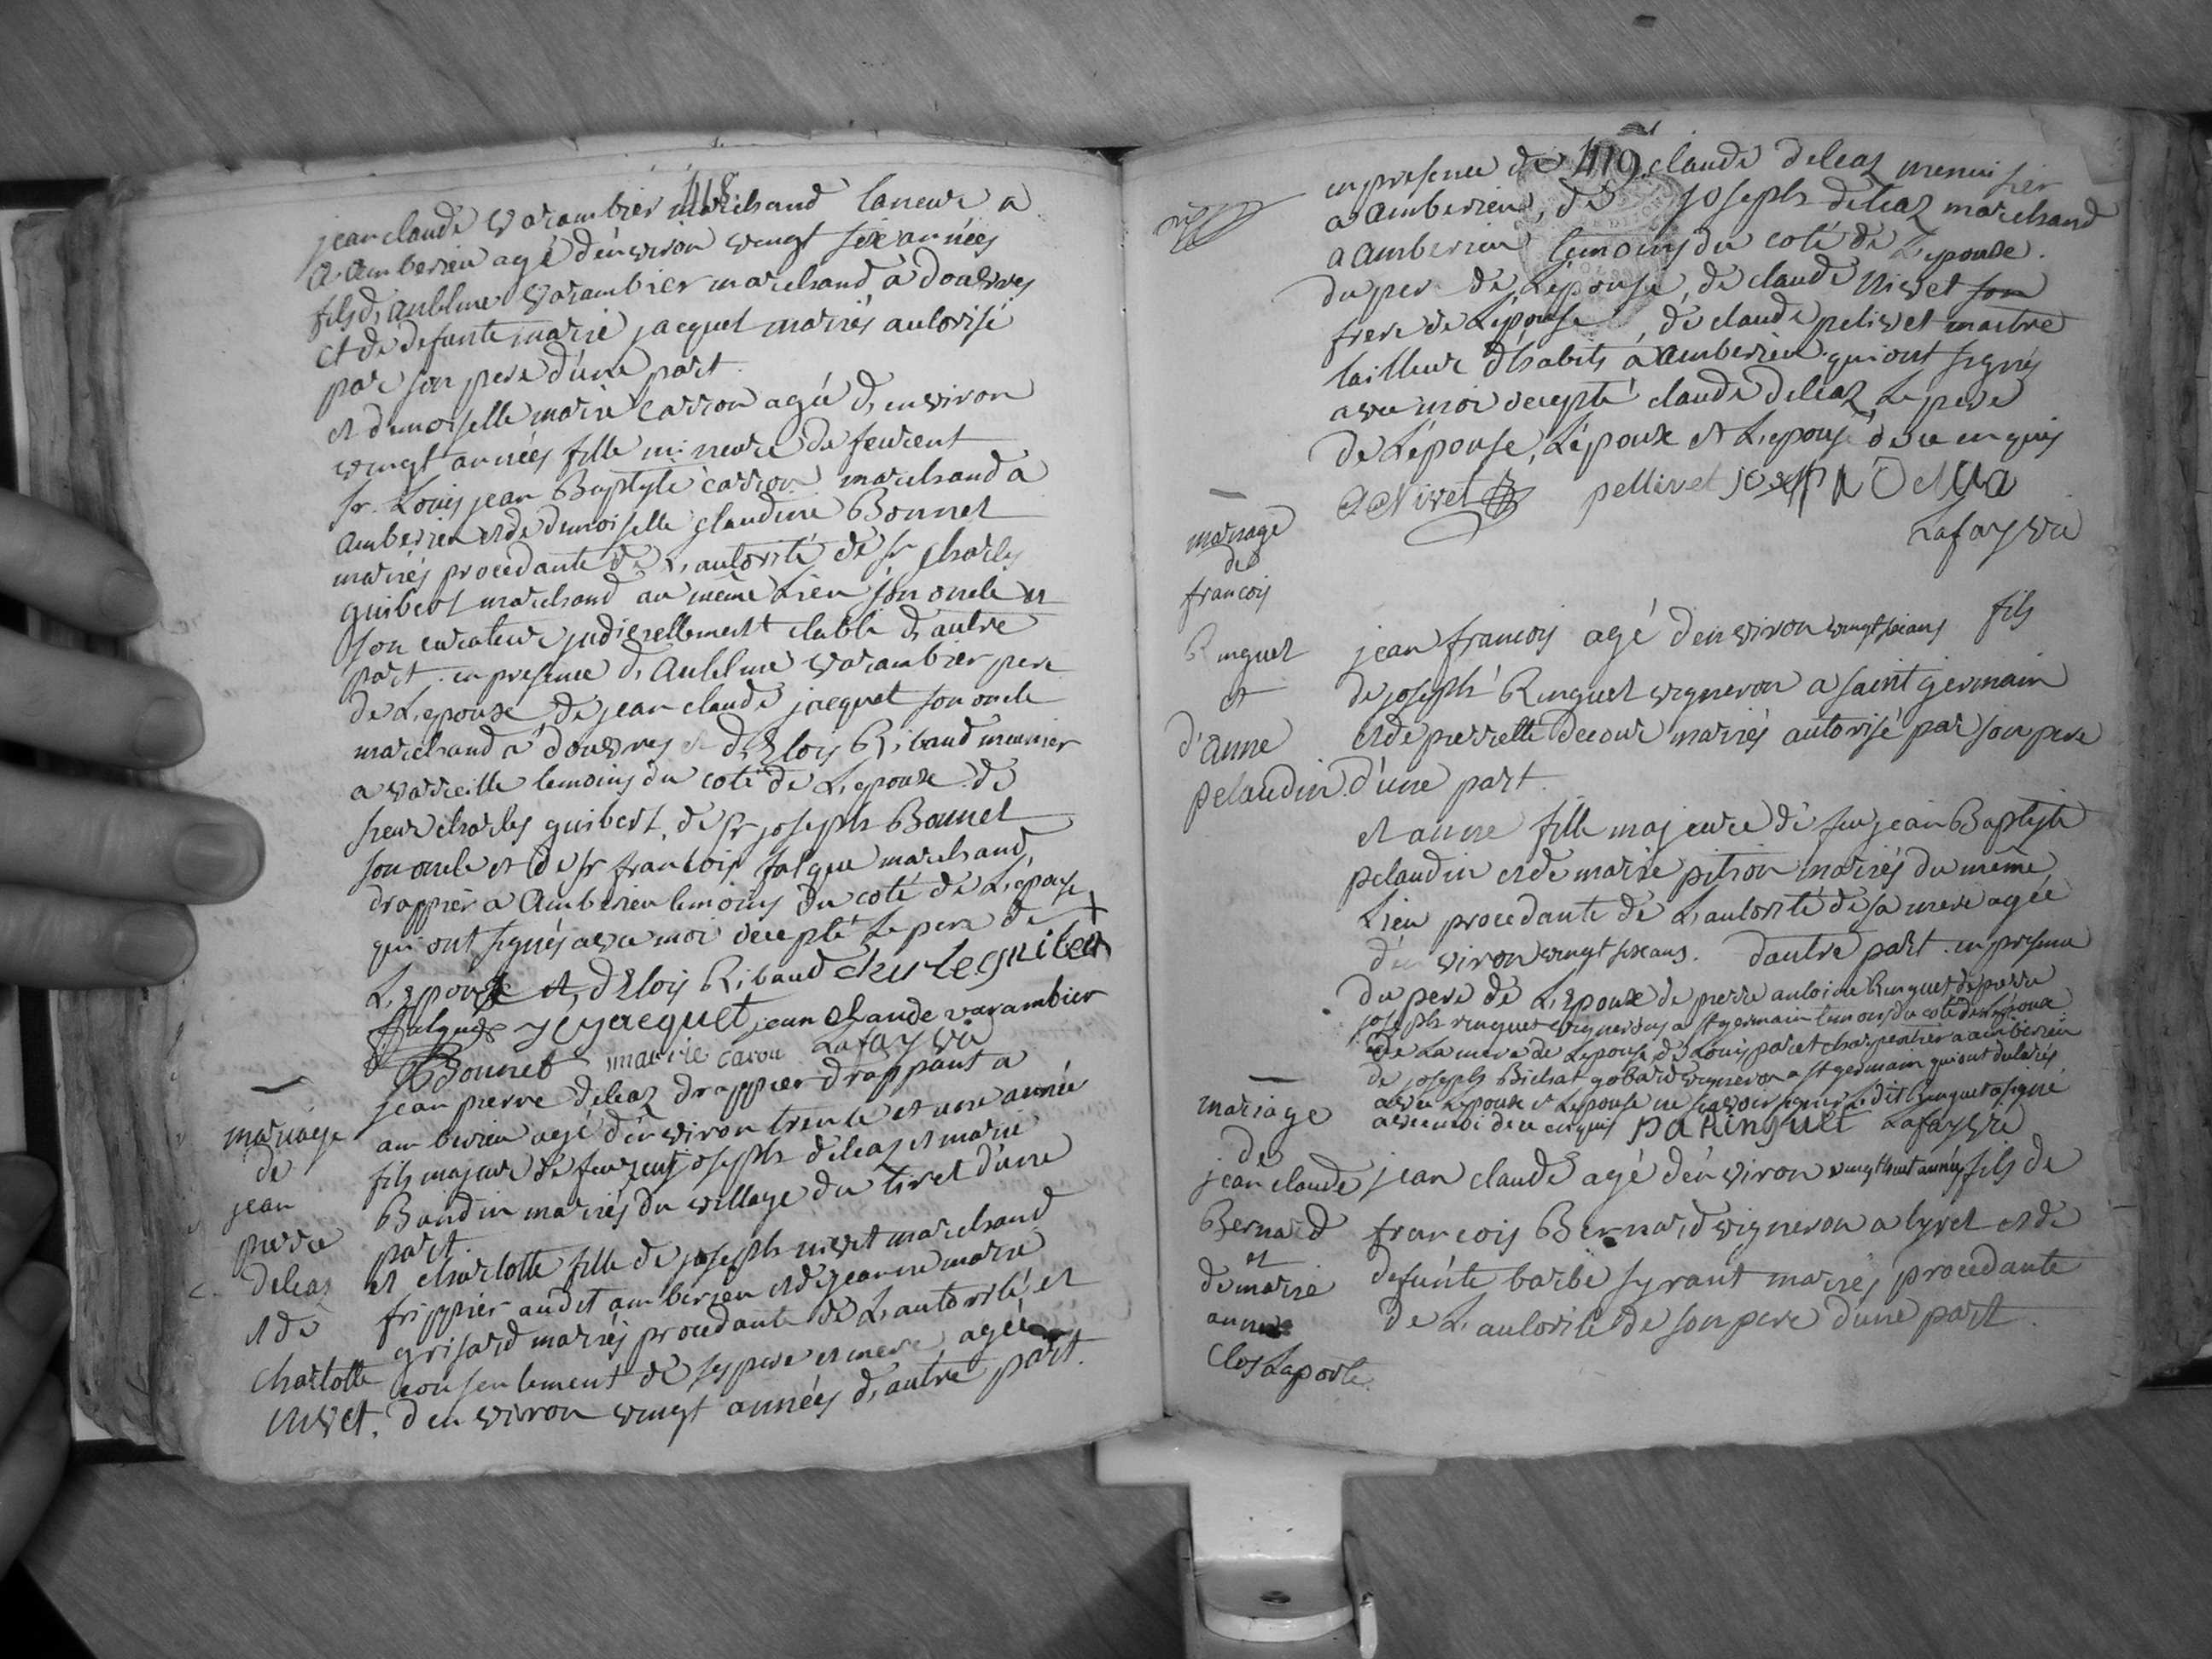 418
jean claude varambier marchand taneur a
a amberieu agé d'environ vingt six années
fils d'anthelme varambier marchand à douvres
et de defunte marie jacquet mariés autorisé
par son pere d'une part
et demoiselle marie carron agée d'environ
vingt années fille mineure de feu
sr. Louis jean Baptiste carron marchand a
amberieu et de demoiselle claudine Bonnet
mariés procedante de L'autorité de sr charles
guibert marchand au même Lieu son oncle et
son curateur judiciellement etabli d'autre
part. en presence d'anthelme varambier pere
de L'epoux, de jean claude jacquet son oncle
marchand a douvres et d'Elois Ribaud meunier
a vareille temoins du coté de L'epoux de
sieur charles guibert, de sr joseph Bonnet
son oncle et de sr francois falque marchand
drappier a amberieu temoins du coté de L'epouse
qui ont signés avec moi excepté Le pere de
L'epoux et d'Elois Ribaud charle guibert
falque jc jacquet jean claude varambier
Bonnet marie caron Lafay vic
mariage
de
jean
pierre
deleaz
et de
charlotte
nivet.
jean pierre deleaz drappier drappant a
amberieu agé d'environ trente et une année
fils majeur de feu joseph deleaz et marie
Baudin mariés du village du tiret d'une
part.
et charlotte fille de joseph nivet marchand
frippier audit amberieu et de jeanne marie
grisard mariés procedante de L'autorité et
consentement de ses pere et mere, agée
d'environ vingt années d'autre part.
419
en presence de claude deleaz menuisier
a amberieu, de joseph deleaz marchand
a amberieu temoins du coté de L'epoux.
du pere de L'epouse, de claude nivet son
frere de L'epouse, de claude pelivet maitre
tailleur d'habits a amberieu qui ont signés
avec moi excepté claude deleaz, Le pere
de L'epouse, L'epoux et L'epouse de ce enquis
C Nivet pellivet joseph Delea
Lafay vic
mariage
de
francois
Ringuet
et
d'anne
pelaudin
jean francois agé d'environ vingt six ans fils
de joseph Ringuet vigneron a saint germain
et de pierrette decour mariés autorisé par son pere
d'une part.
et anne fille majeure de feu jean Baptiste
pelaudin et de marie pition mariés du même
Lieu procedante de L'autorité de sa mere agée
d'environ vingt six ans. d'autre part. en presence
du pere de L'epoux de pierre antoine Ringuet de pierre
joseph ringuet vignerons a st germain temoins du coté de L'epoux
de La mere de L'epouse, de Louis paret charpentier a amberieu
de joseph Bichat gobard vigneron a st germain qui ont declarés
avec L'epoux et L'epouse ne scavoir signer Ledit Ringuet a signé
avec moi de ce enquis pa Ringuet Lafay vic
mariage
de
jean claude
Bernard
et
de marie
anne
Clos Laporte.
jean claude agé d'environ vingt huit années fils de
francois Bernard vigneron a tyret et de
defunte barbe syrant mariés, procedante
de L'autorité de son pere d'une part.